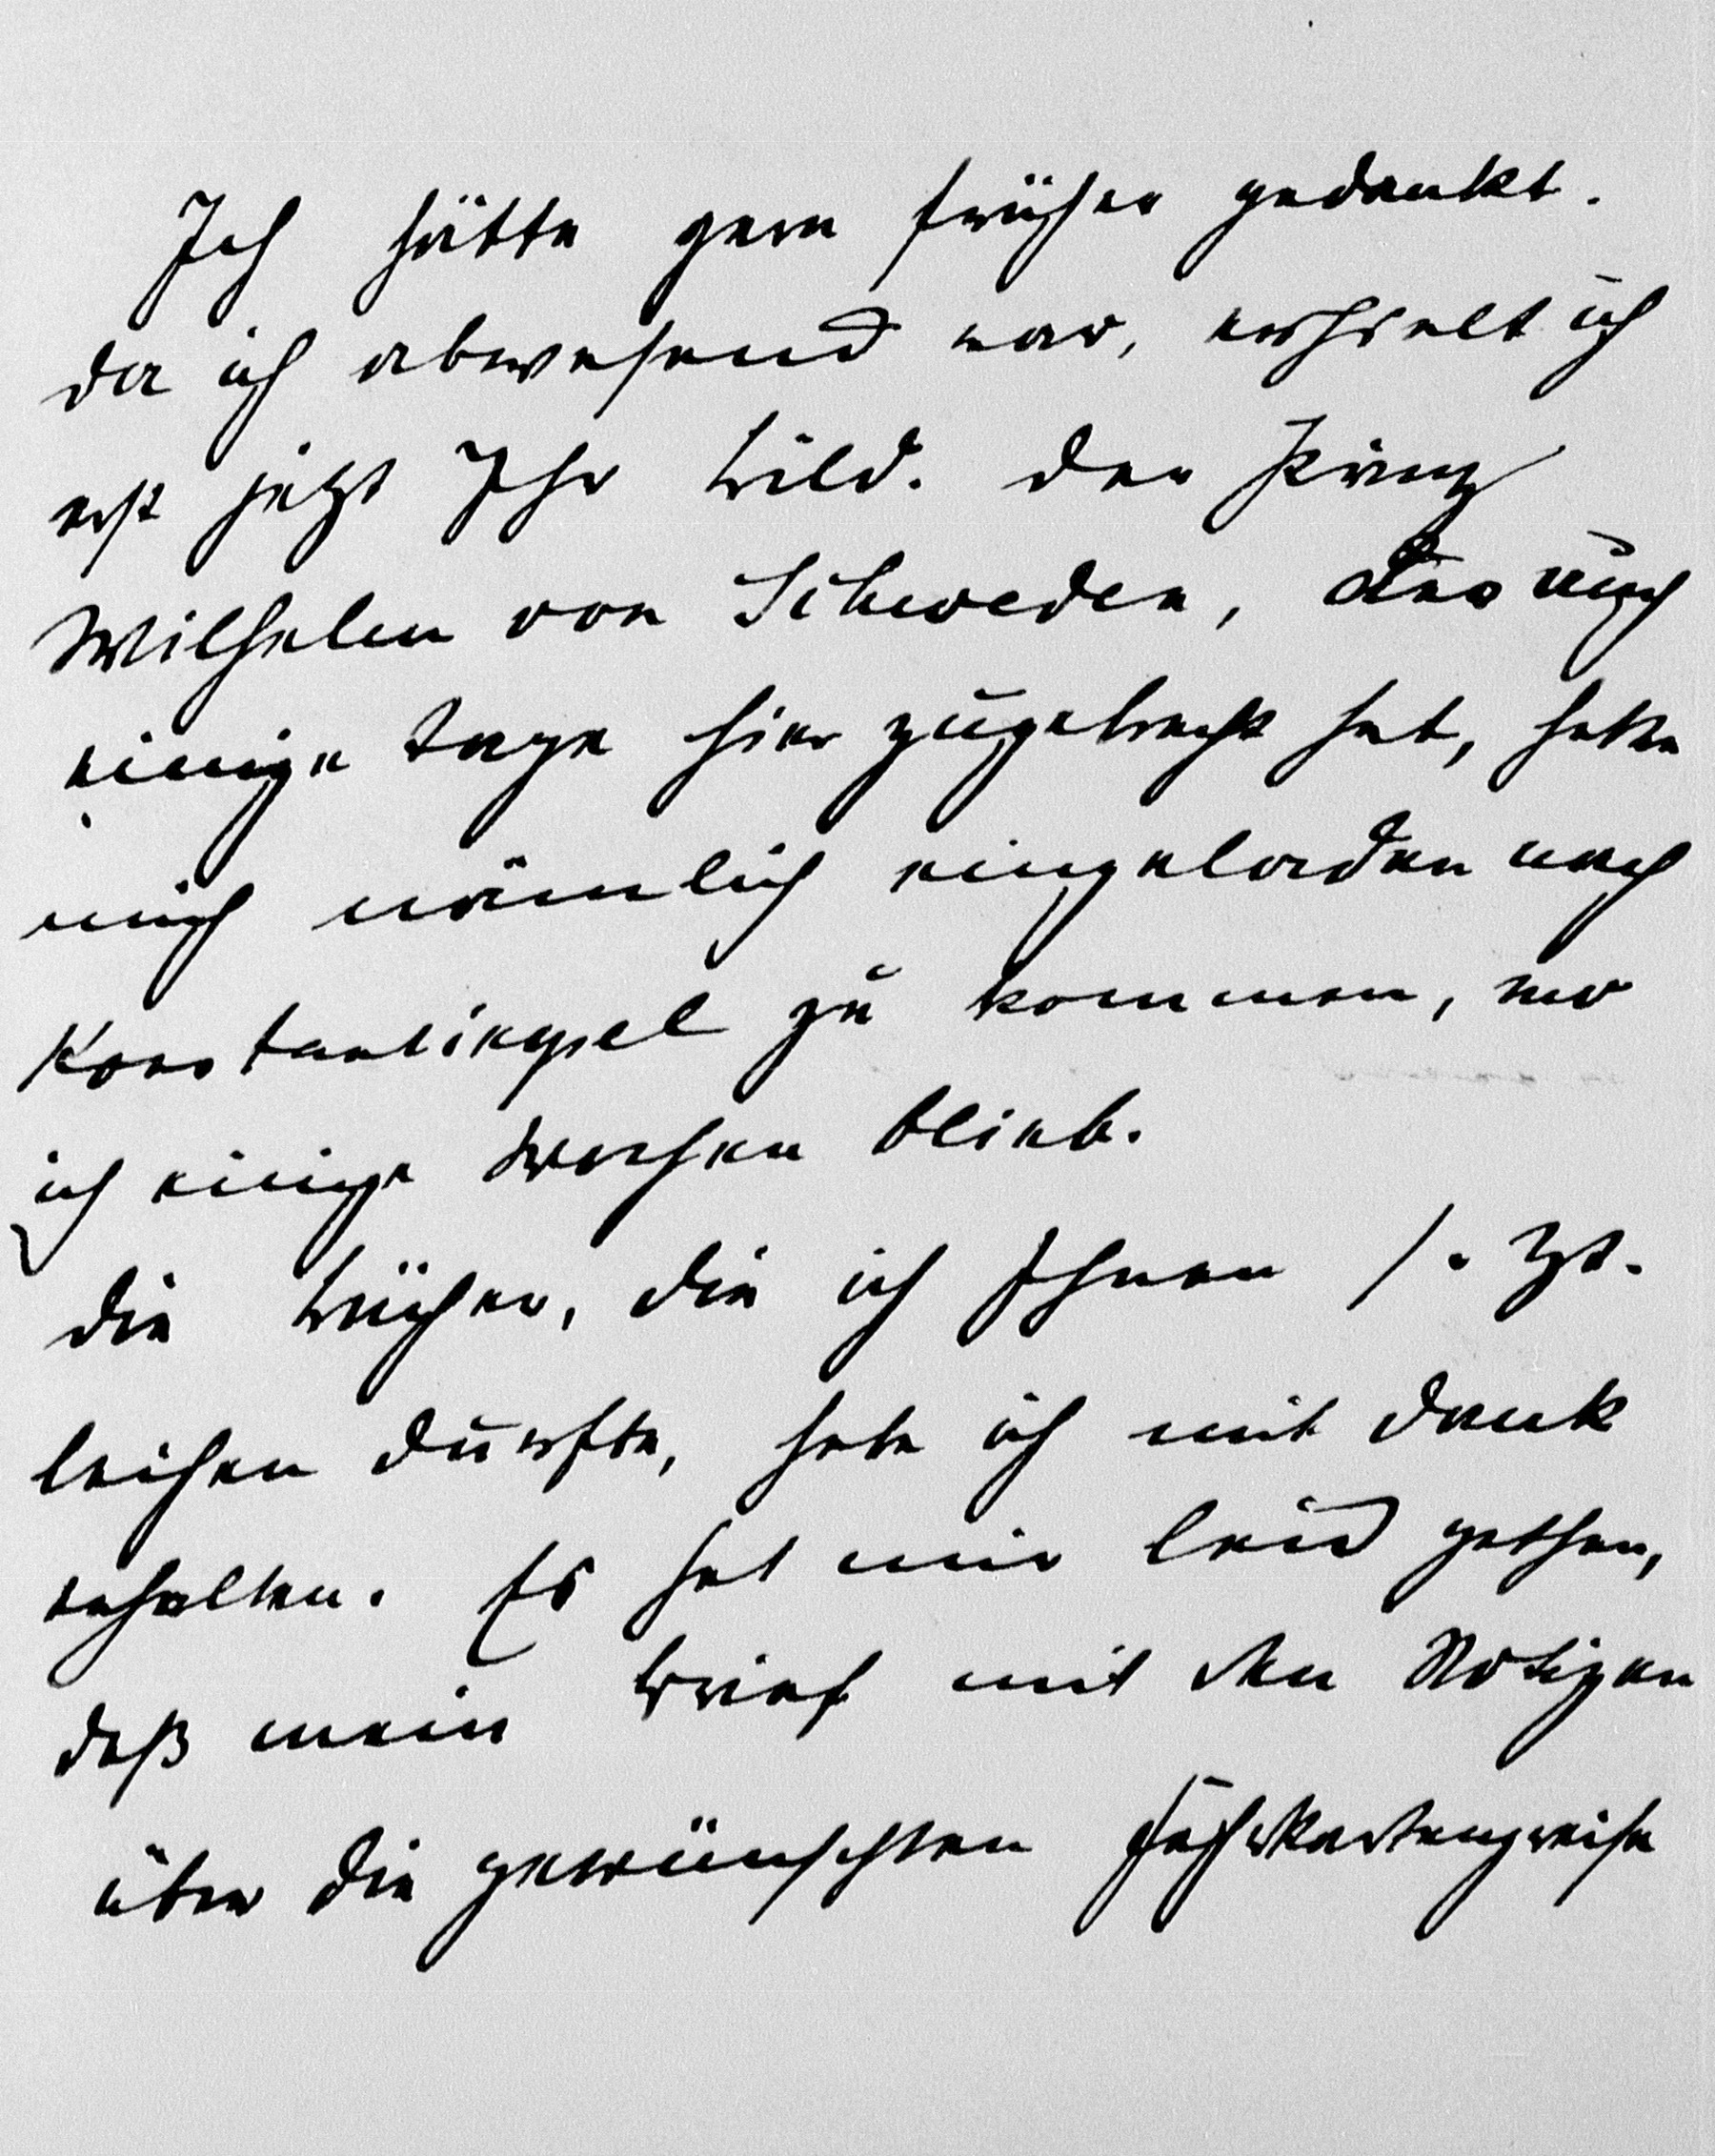 Ich hätte gern früher gedankt.
da ich abwesend war, erhielt ich
erst jetzt Ihr Bild. Der Prinz
Wilhelm von Schweden, der auch
einige Tage hier zugebracht hat, hatte
mich nämlich eingeladen nach
Konstantinopel zu kommen, wo
ich einige Wochen blieb.
Die Bücher, die ich Ihnen s. Zt.
leihen durfte, habe ich mit Dank
erhalten. Es hat mir leid gethan,
daß mein Brief mit den Notizen
über die gewünschten Fahrkartenpreise